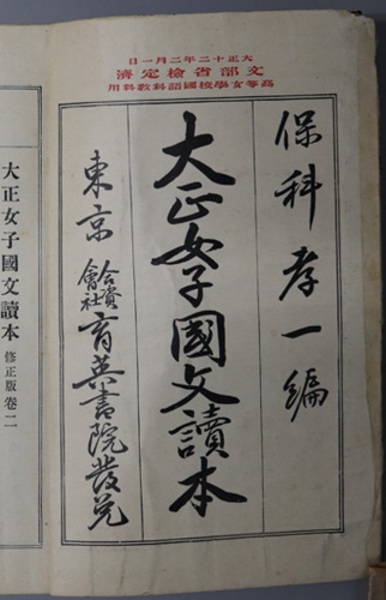 大正十二年二月一日
文部省檢定濟
高等女學校國語科敎科用
保科孝一編
大正女子國文讀本
東京 合資會社 育英書院發兌
大正女子國文讀本 修正版 卷二